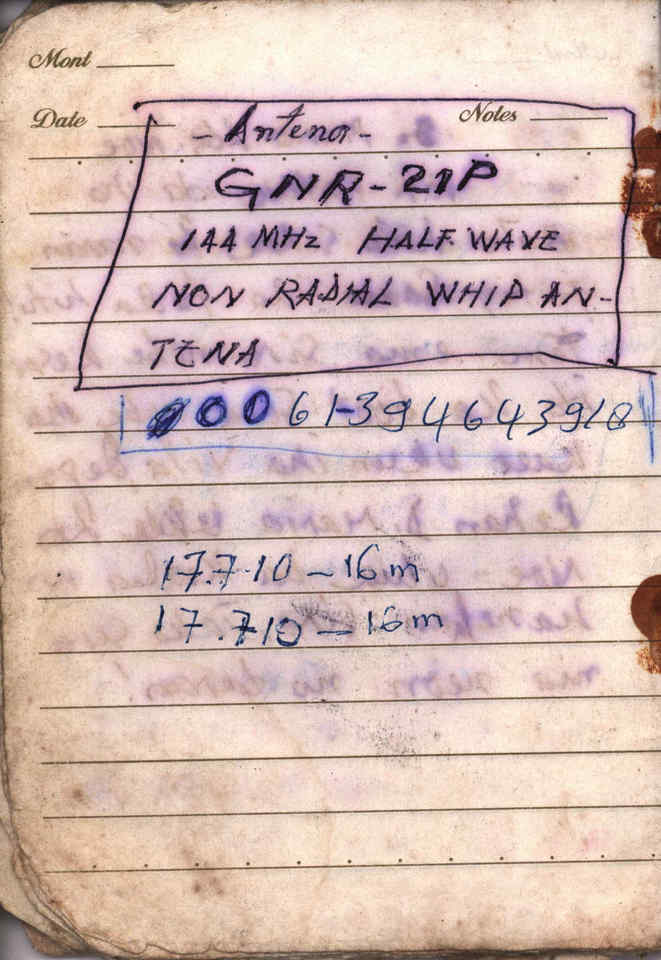 Mont
Date
Notes
- Antena -
GNR-21P
144 MHz HALF WAVE
NON RADIAL WHIP AN-
TENA
00061-394643918
17.7.10 - 16m
17.710 - 16m